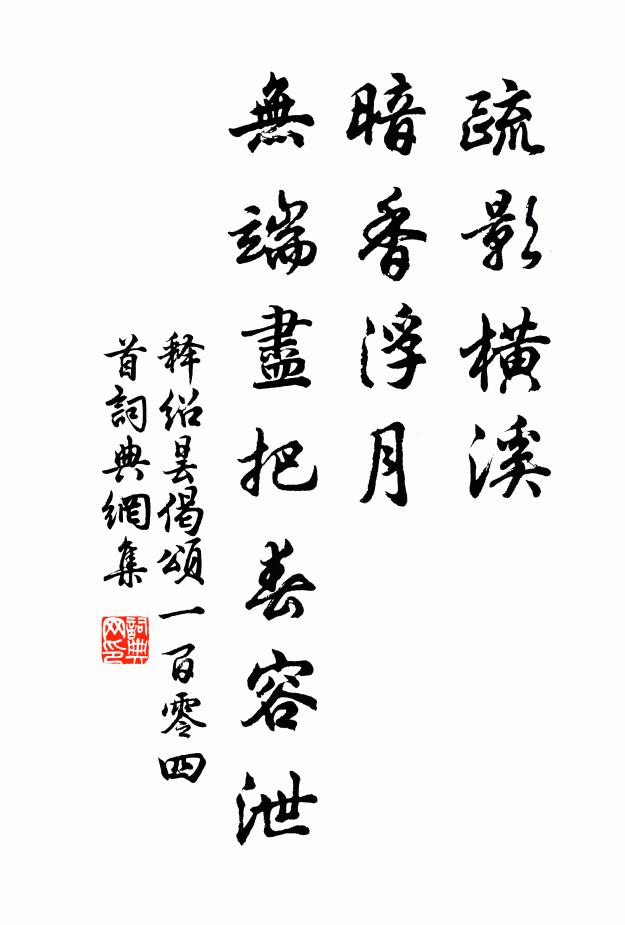 疏影橫溪
暗香浮月
無端盡把春容泄
释绍昙偈頌一百零四
首詞典網集
詞典网印